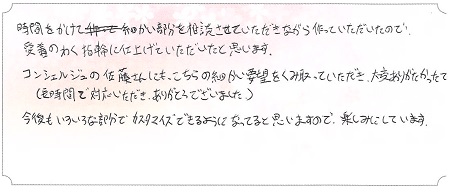 時間をかけて細かい部分を相談させていただきながら作っていただいたので、
愛着のわく指輪に仕上げていただいたと思います。
コンシェルジュの佐藤さんにも、こちらの細かい要望をくみ取っていただき、大変ありがたかったです
(長時間で対応いただき、ありがとうございました)
今後もいろいろな部分でカスタマイズできるようになってると思いますので、楽しみにしています。